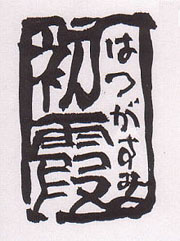 はつがすみ
初霞